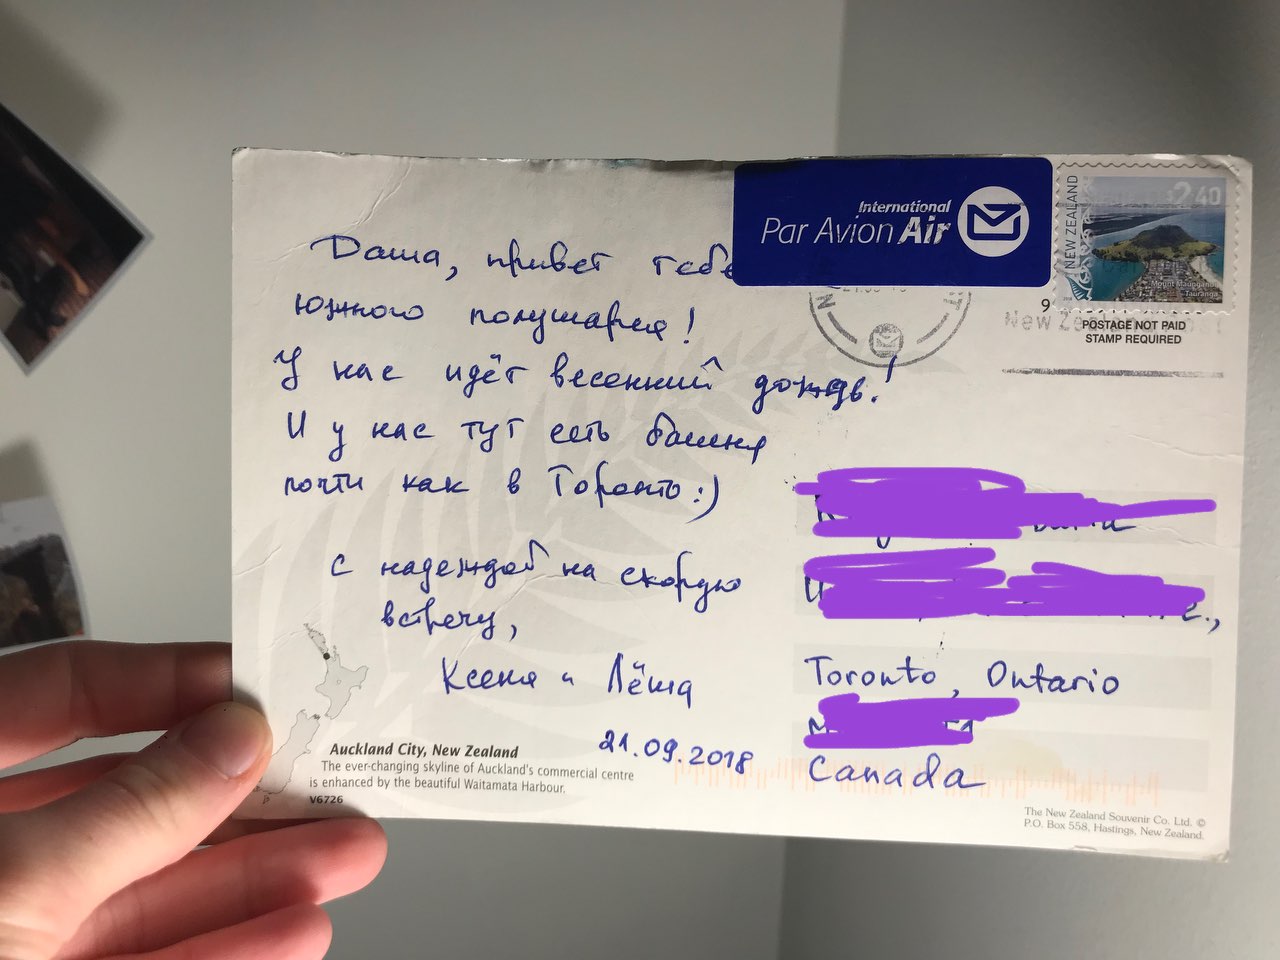 Даша, привет тебе
южного полушария!
У нас идёт весенний дождь!
И у нас тут есть башня
почти как в Торонто:)
с надеждой на скорую
встречу,
Ксеня и Лёша
21.09.2018
Auckland City, New Zealand
The ever-changing skyline of Auckland's commercial centre
is enhanced by the beautiful Waitamata Harbour.
V6726
International
Par Avion Air
NEW ZEALAND
$2.40
Mount Maunganui
Tauranga
9
New Zealand Post
POSTAGE NOT PAID
STAMP REQUIRED
Toronto, Ontario
Canada
The New Zealand Souvenir Co. Ltd. ©
P.O. Box 558, Hastings, New Zealand.